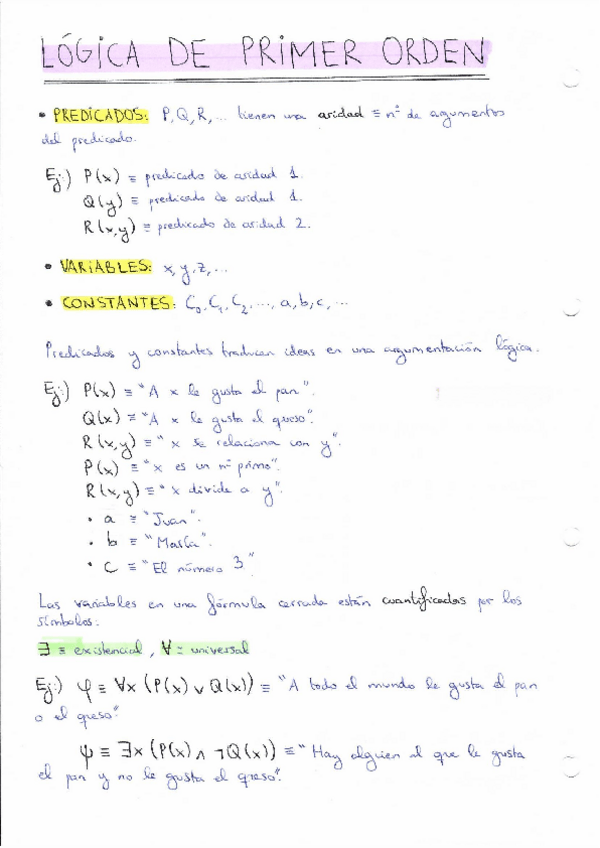 LÓGICA DE PRIMER ORDEN
• PREDICADOS: P, Q, R, ... tienen una aridad ≡ nº de argumentos
del predicado.
Ej:) P(x) ≡ predicado de aridad 1.
Q(y) ≡ predicado de aridad 1.
R(x,y) ≡ predicado de aridad 2.
• VARIABLES: x, y, z, ...
• CONSTANTES: C₀, C₁, C₂, ..., a, b, c, ...
Predicados y constantes traducen ideas en una argumentación lógica.
Ej:) P(x) ≡ "A x le gusta el pan".
Q(x) ≡ "A x le gusta el queso".
R(x,y) ≡ "x se relaciona con y".
P(x) ≡ "x es un nº primo".
R(x,y) ≡ "x divide a y".
• a ≡ "Juan".
• b ≡ "María".
• c ≡ "El número 3"
Las variables en una fórmula cerrada están cuantificadas por los
símbolos:
∃ ≡ existencial, ∀ ≡ universal
Ej:) φ ≡ ∀x (P(x) ∨ Q(x)) ≡ "A todo el mundo le gusta el pan
o el queso".
ψ ≡ ∃x (P(x) ∧ ¬Q(x)) ≡ "Hay alguien al que le gusta
el pan y no le gusta el queso".